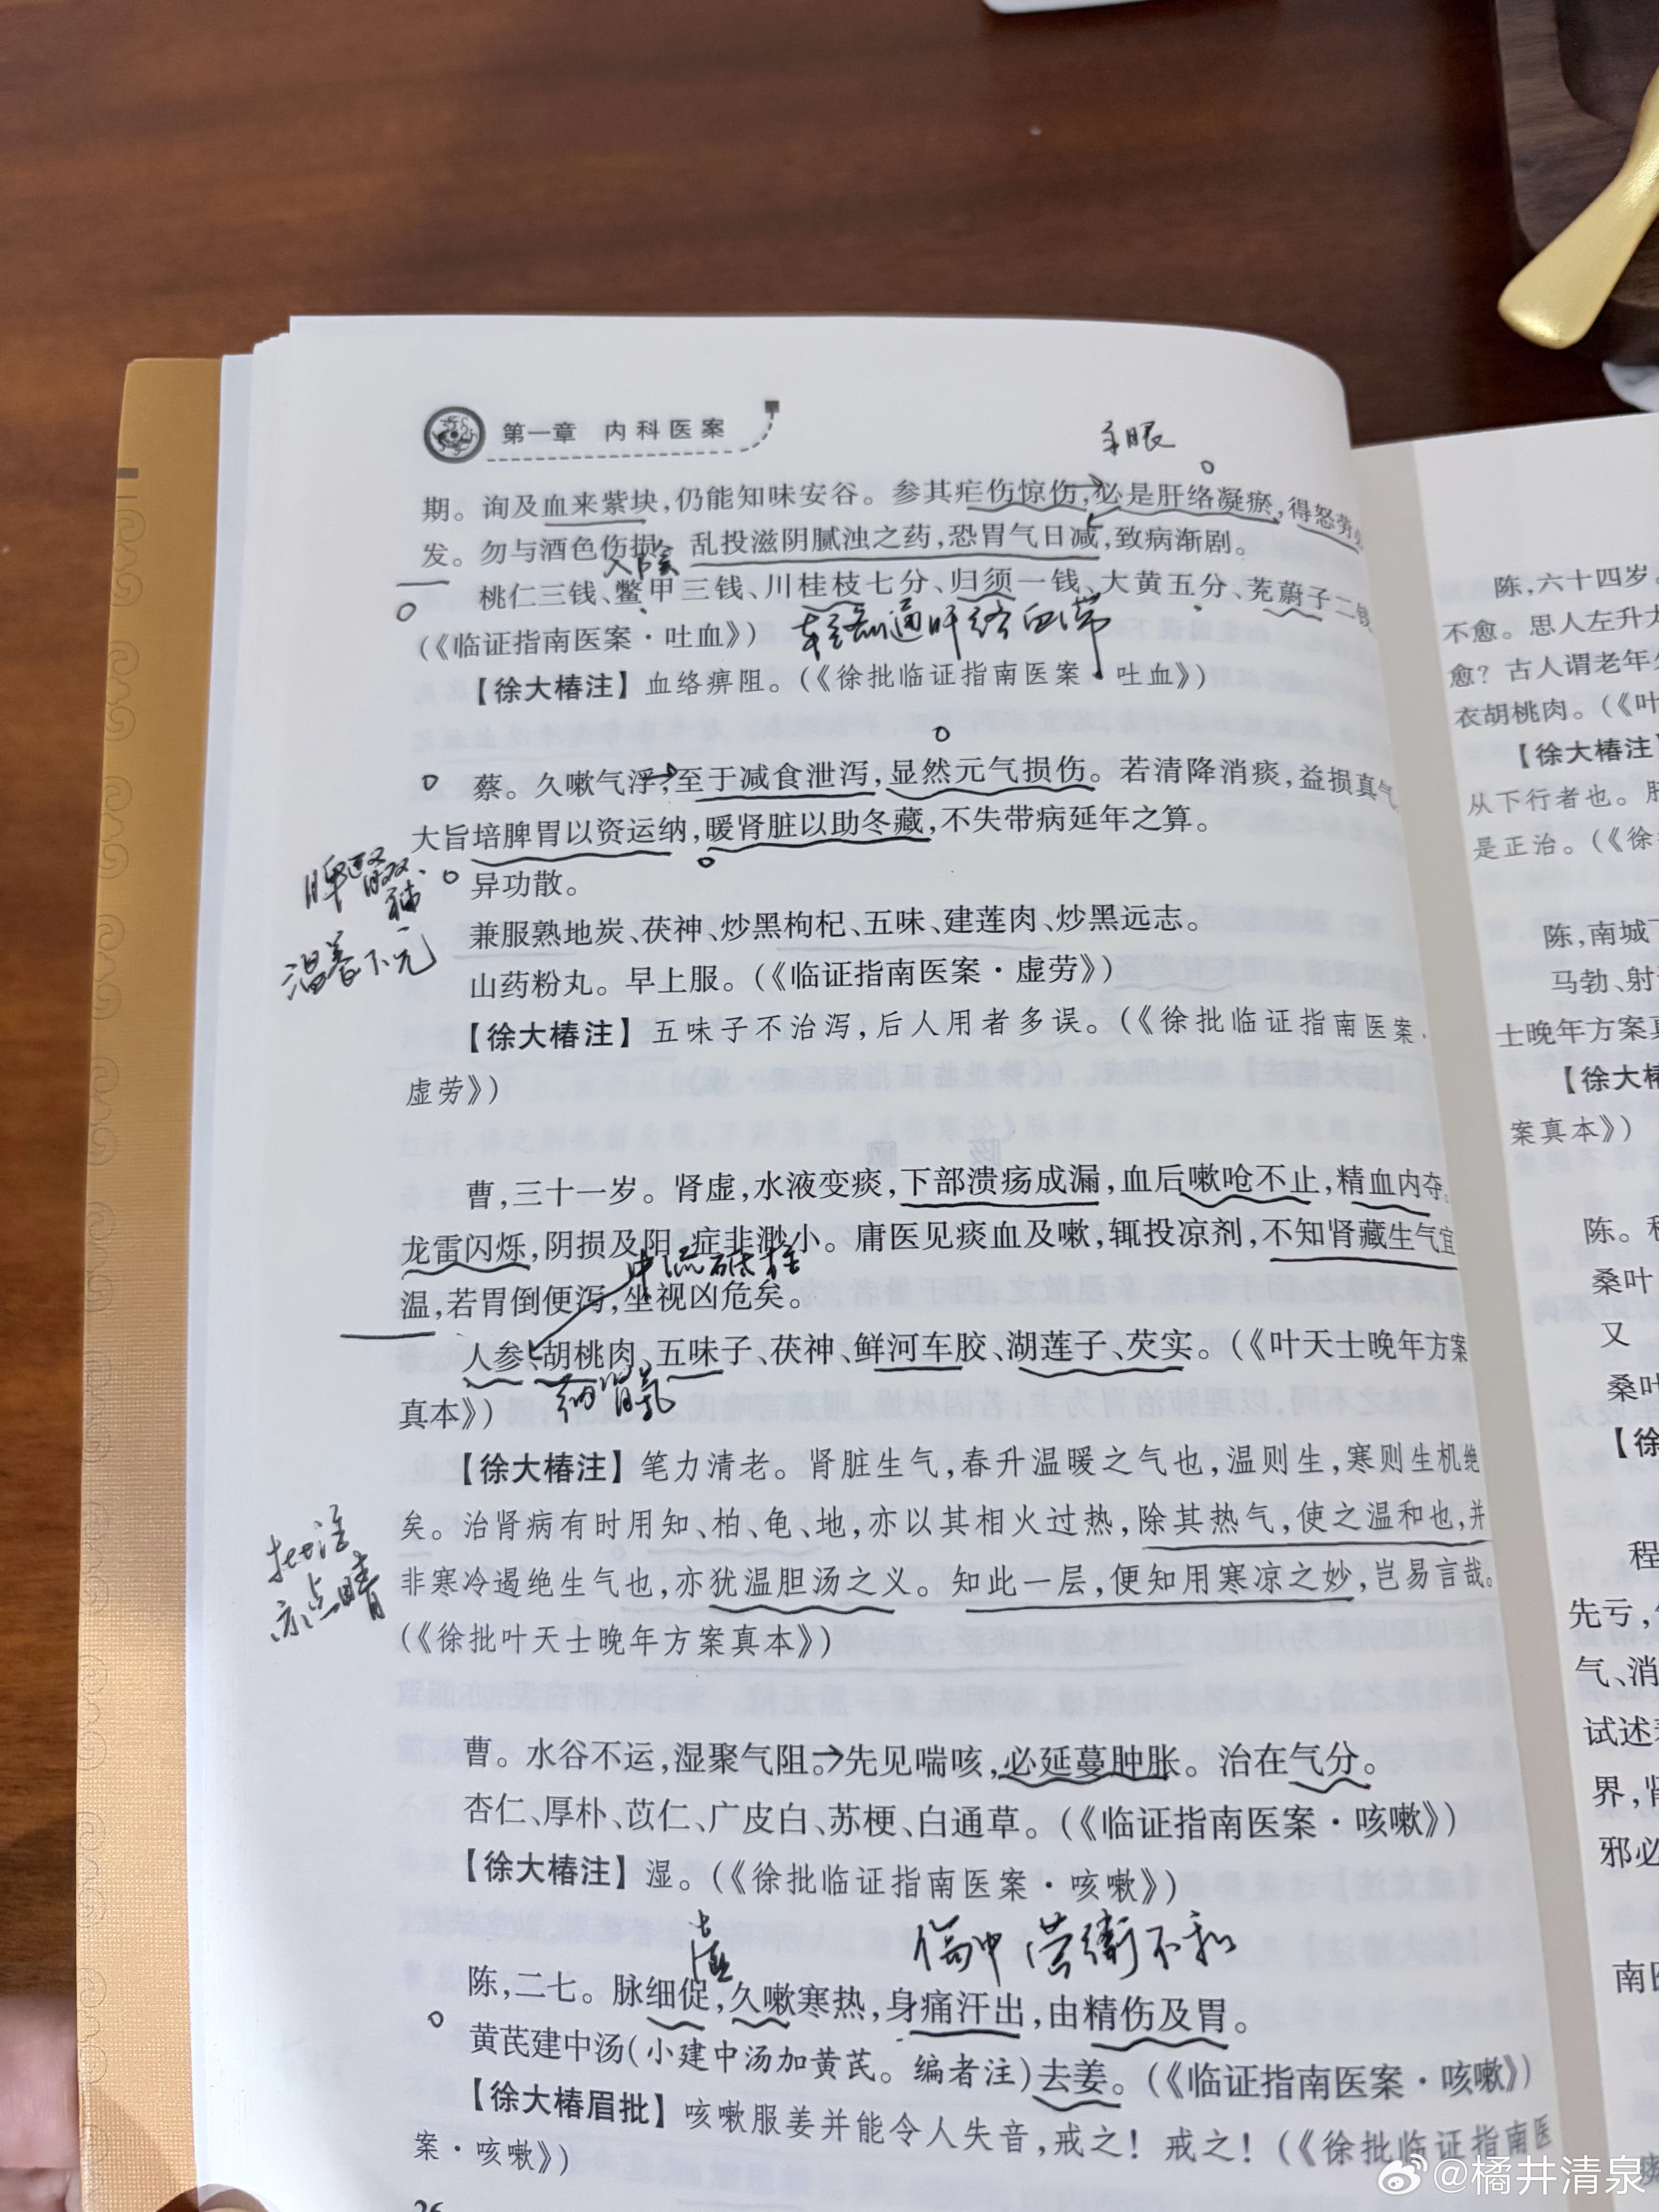 第一章 内科医案
手眼
期。询及血来紫块,仍能知味安谷。参其疟伤惊伤,必是肝络凝瘀,得怒劳必
发。勿与酒色伤损 乱投滋阴腻浊之药,恐胃气日减,致病渐剧。
入阴
桃仁三钱、鳖甲三钱、川桂枝七分、归须一钱、大黄五分、茺蔚子二钱
(《临证指南医案·吐血》)
轻剂通肝络血滞
【徐大椿注】血络痹阻。(《徐批临证指南医案·吐血》)
蔡。久嗽气浮,至于减食泄泻,显然元气损伤。若清降消痰,益损真气
大旨培脾胃以资运纳,暖肾脏以助冬藏,不失带病延年之算。
脾肾双补
异功散。
兼服熟地炭、茯神、炒黑枸杞、五味、建莲肉、炒黑远志。
温养下元
山药粉丸。早上服。(《临证指南医案·虚劳》)
【徐大椿注】五味子不治泻,后人用者多误。(《徐批临证指南医案·
虚劳》)
曹,三十一岁。肾虚,水液变痰,下部溃疡成漏,血后嗽呛不止,精血内夺。
龙雷闪烁,阴损及阳 症非渺小。庸医见痰血及嗽,辄投凉剂,不知肾藏生气宜
中流砥柱
温,若胃倒便泻,坐视凶危矣。
人参、胡桃肉、五味子、茯神、鲜河车胶、湖莲子、芡实。(《叶天士晚年方案
真本》)
纳肾气
【徐大椿注】笔力清老。肾脏生气,春升温暖之气也,温则生,寒则生机绝
矣。治肾病有时用知、柏、龟、地,亦以其相火过热,除其热气,使之温和也,并
批注
亦点睛
非寒冷遏绝生气也,亦犹温胆汤之义。知此一层,便知用寒凉之妙,岂易言哉。
(《徐批叶天士晚年方案真本》)
曹。水谷不运,湿聚气阻。先见喘咳,必延蔓肿胀。治在气分。
杏仁、厚朴、苡仁、广皮白、苏梗、白通草。(《临证指南医案·咳嗽》)
【徐大椿注】湿。(《徐批临证指南医案·咳嗽》)
伤中 营衛不和
陈,二七。脉细促,久嗽寒热,身痛汗出,由精伤及胃。
黄芪建中汤(小建中汤加黄芪。编者注)去姜。(《临证指南医案·咳嗽》)
【徐大椿眉批】咳嗽服姜并能令人失音,戒之!戒之!(《徐批临证指南医
案·咳嗽》)
26
陈,六十四岁。
不愈。思人左升
愈?古人谓老年
衣胡桃肉。(《叶
【徐大椿注】
从下行者也。
是正治。(《徐
陈,南城
马勃、射
士晚年方案
【徐大
案真本》)
陈。
桑叶
又
桑叶
【徐
程
先亏,
气、消
试述
界,
邪必
南
@橘井清泉